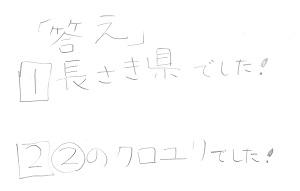 「答え」
1長さき県でした!
2②のクロユリでした!